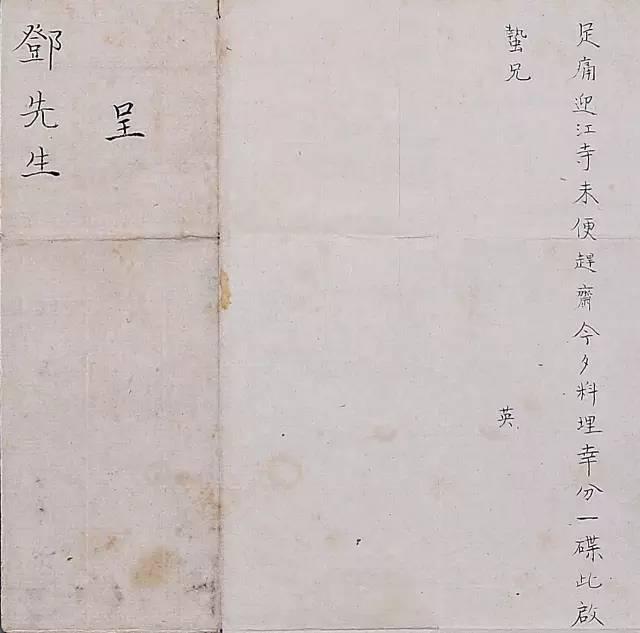 足痛迎江寺未便趕齋今夕料理幸分一碟此啟
蟄兄
英
呈
鄧先生